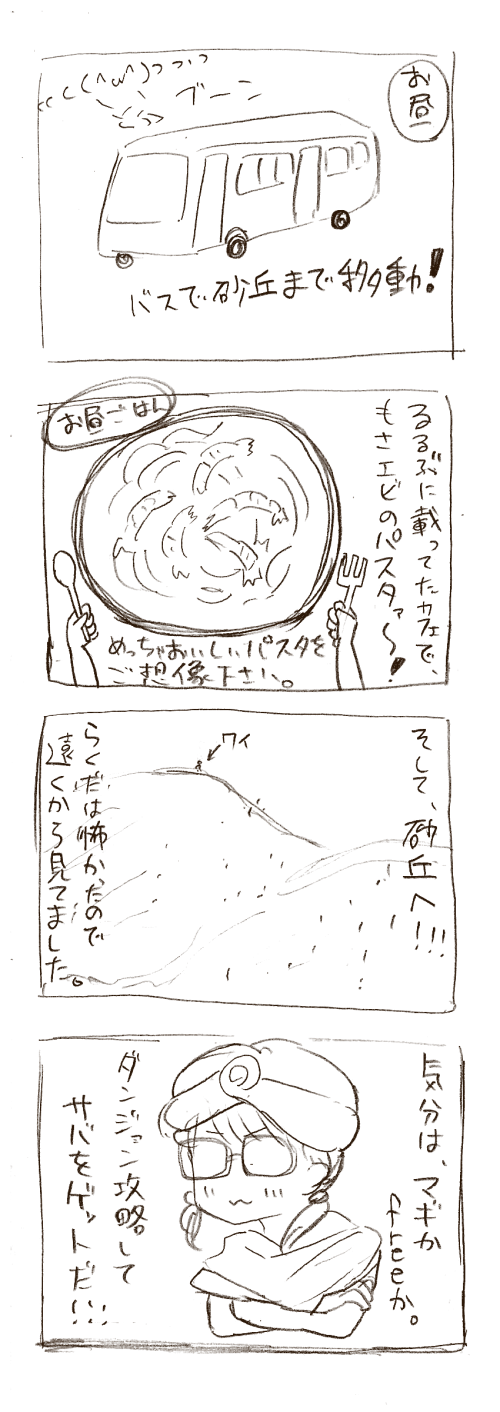 お昼
ブーン
バスで砂丘まで移動!
お昼ごはん
るるぶに載ってたカフェで、
もさエビのパスタァ〜!
めっちゃおいしいパスタを
ご想像下さい。
そして、砂丘へ!!!
ワイ
らくだは怖かったので
遠くから見てました。
気分は、マギか
freeか。
ダンジョン攻略して
サバをゲットだ!!!